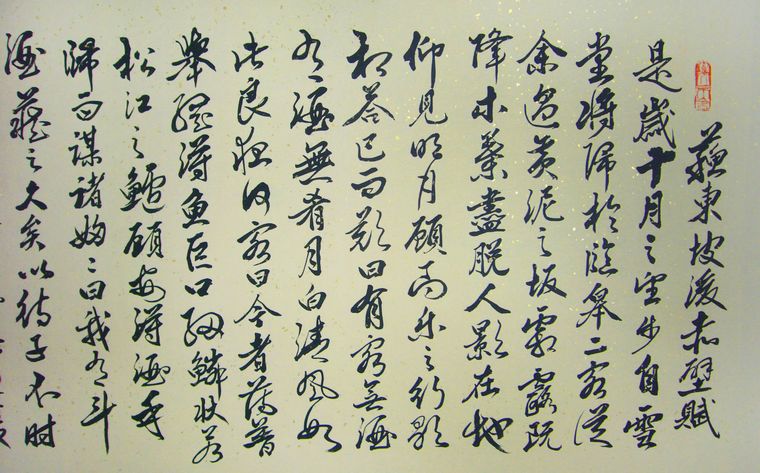 蘇東坡後赤壁賦
是歲十月之望步自雪
堂將歸於臨皋二客從
余過黃泥之坂霜露既
降木葉盡脫人影在地
仰見明月顧而樂之行歌
相答已而歎曰有客無酒
有酒無肴月白清風如
此良夜何客曰今者薄暮
舉網得魚巨口細鱗狀若
松江之鱸顧安得酒乎
歸而謀諸婦〻曰我有斗
酒藏之久矣以待子不時